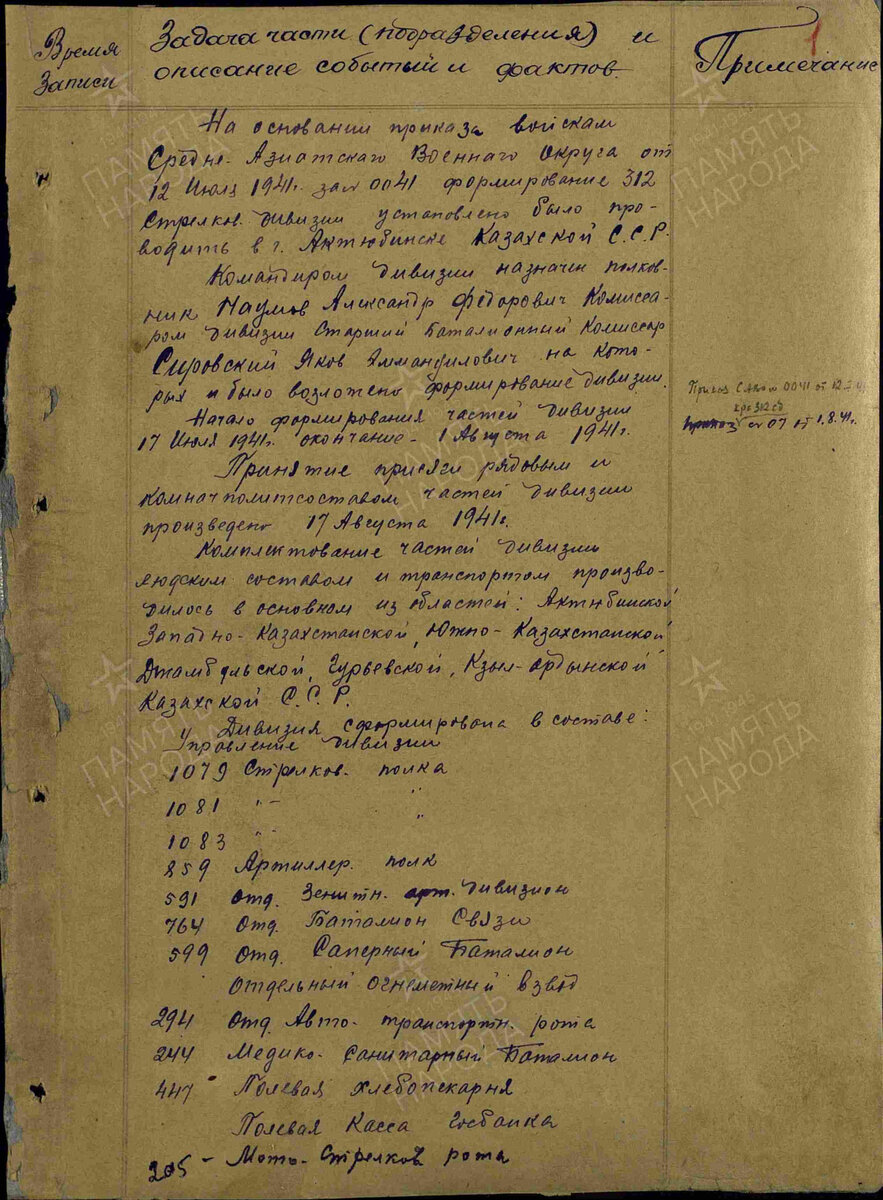 1
Время
Записи
Задача части (подразделения) и
описание событий и фактов
Примечание
На основании приказа войскам
Средне-Азиатскаго Военнаго Округа от
12 Июля 1941г. за № 0041 формирование 312
Стрелков. дивизии установлено было про-
водить в г. Актюбинске Казахской С.С.Р.
Командиром дивизии назначен полков-
ник Наумов Александр Федорович Комисса-
ром дивизии Старший Баталионный Комиссар
Сировский Яков Эммануилович на кото-
рых и было возложено формирование дивизии.
Начало формирования частей дивизии
17 Июля 1941г. окончание - 1 Августа 1941г.
Приказ САВО № 0041 от
312 сд
приказ № 07 от 1.8.41г.
Принятие присяги рядовым и
комначполитсоставом частей дивизии
произведено 17 Августа 1941г.
Комплектование частей дивизии
людским составом и транспортом произво-
дилось в основном из областей: Актюбинской
Западно-Казахстанской, Южно-Казахстанской
Джамбульской, Гурьевской, Кзыл-ордынской
Казахской С.С.Р.
Дивизия сформирована в составе:
Управление дивизии
1079 Стрелков. полка
1081 "- "
1083 "- "
859 Артиллер. полк
591 отд. Зенитн. арт. дивизион
764 отд. Баталион Связи
599 отд. Саперный Баталион
Отдельный огнеметный взвод
294 отд. Авто-транспортн. рота
244 Медико-Санитарный Баталион
447 Полевая хлебопекарня
Полевая Касса Госбанка
205 - Мото-Стрелков рота
ПАМЯТЬ
НАРОДА
ПАМЯТЬ
НАРОДА
ПАМЯТЬ
НАРОДА
ПАМЯТЬ
НАРОДА